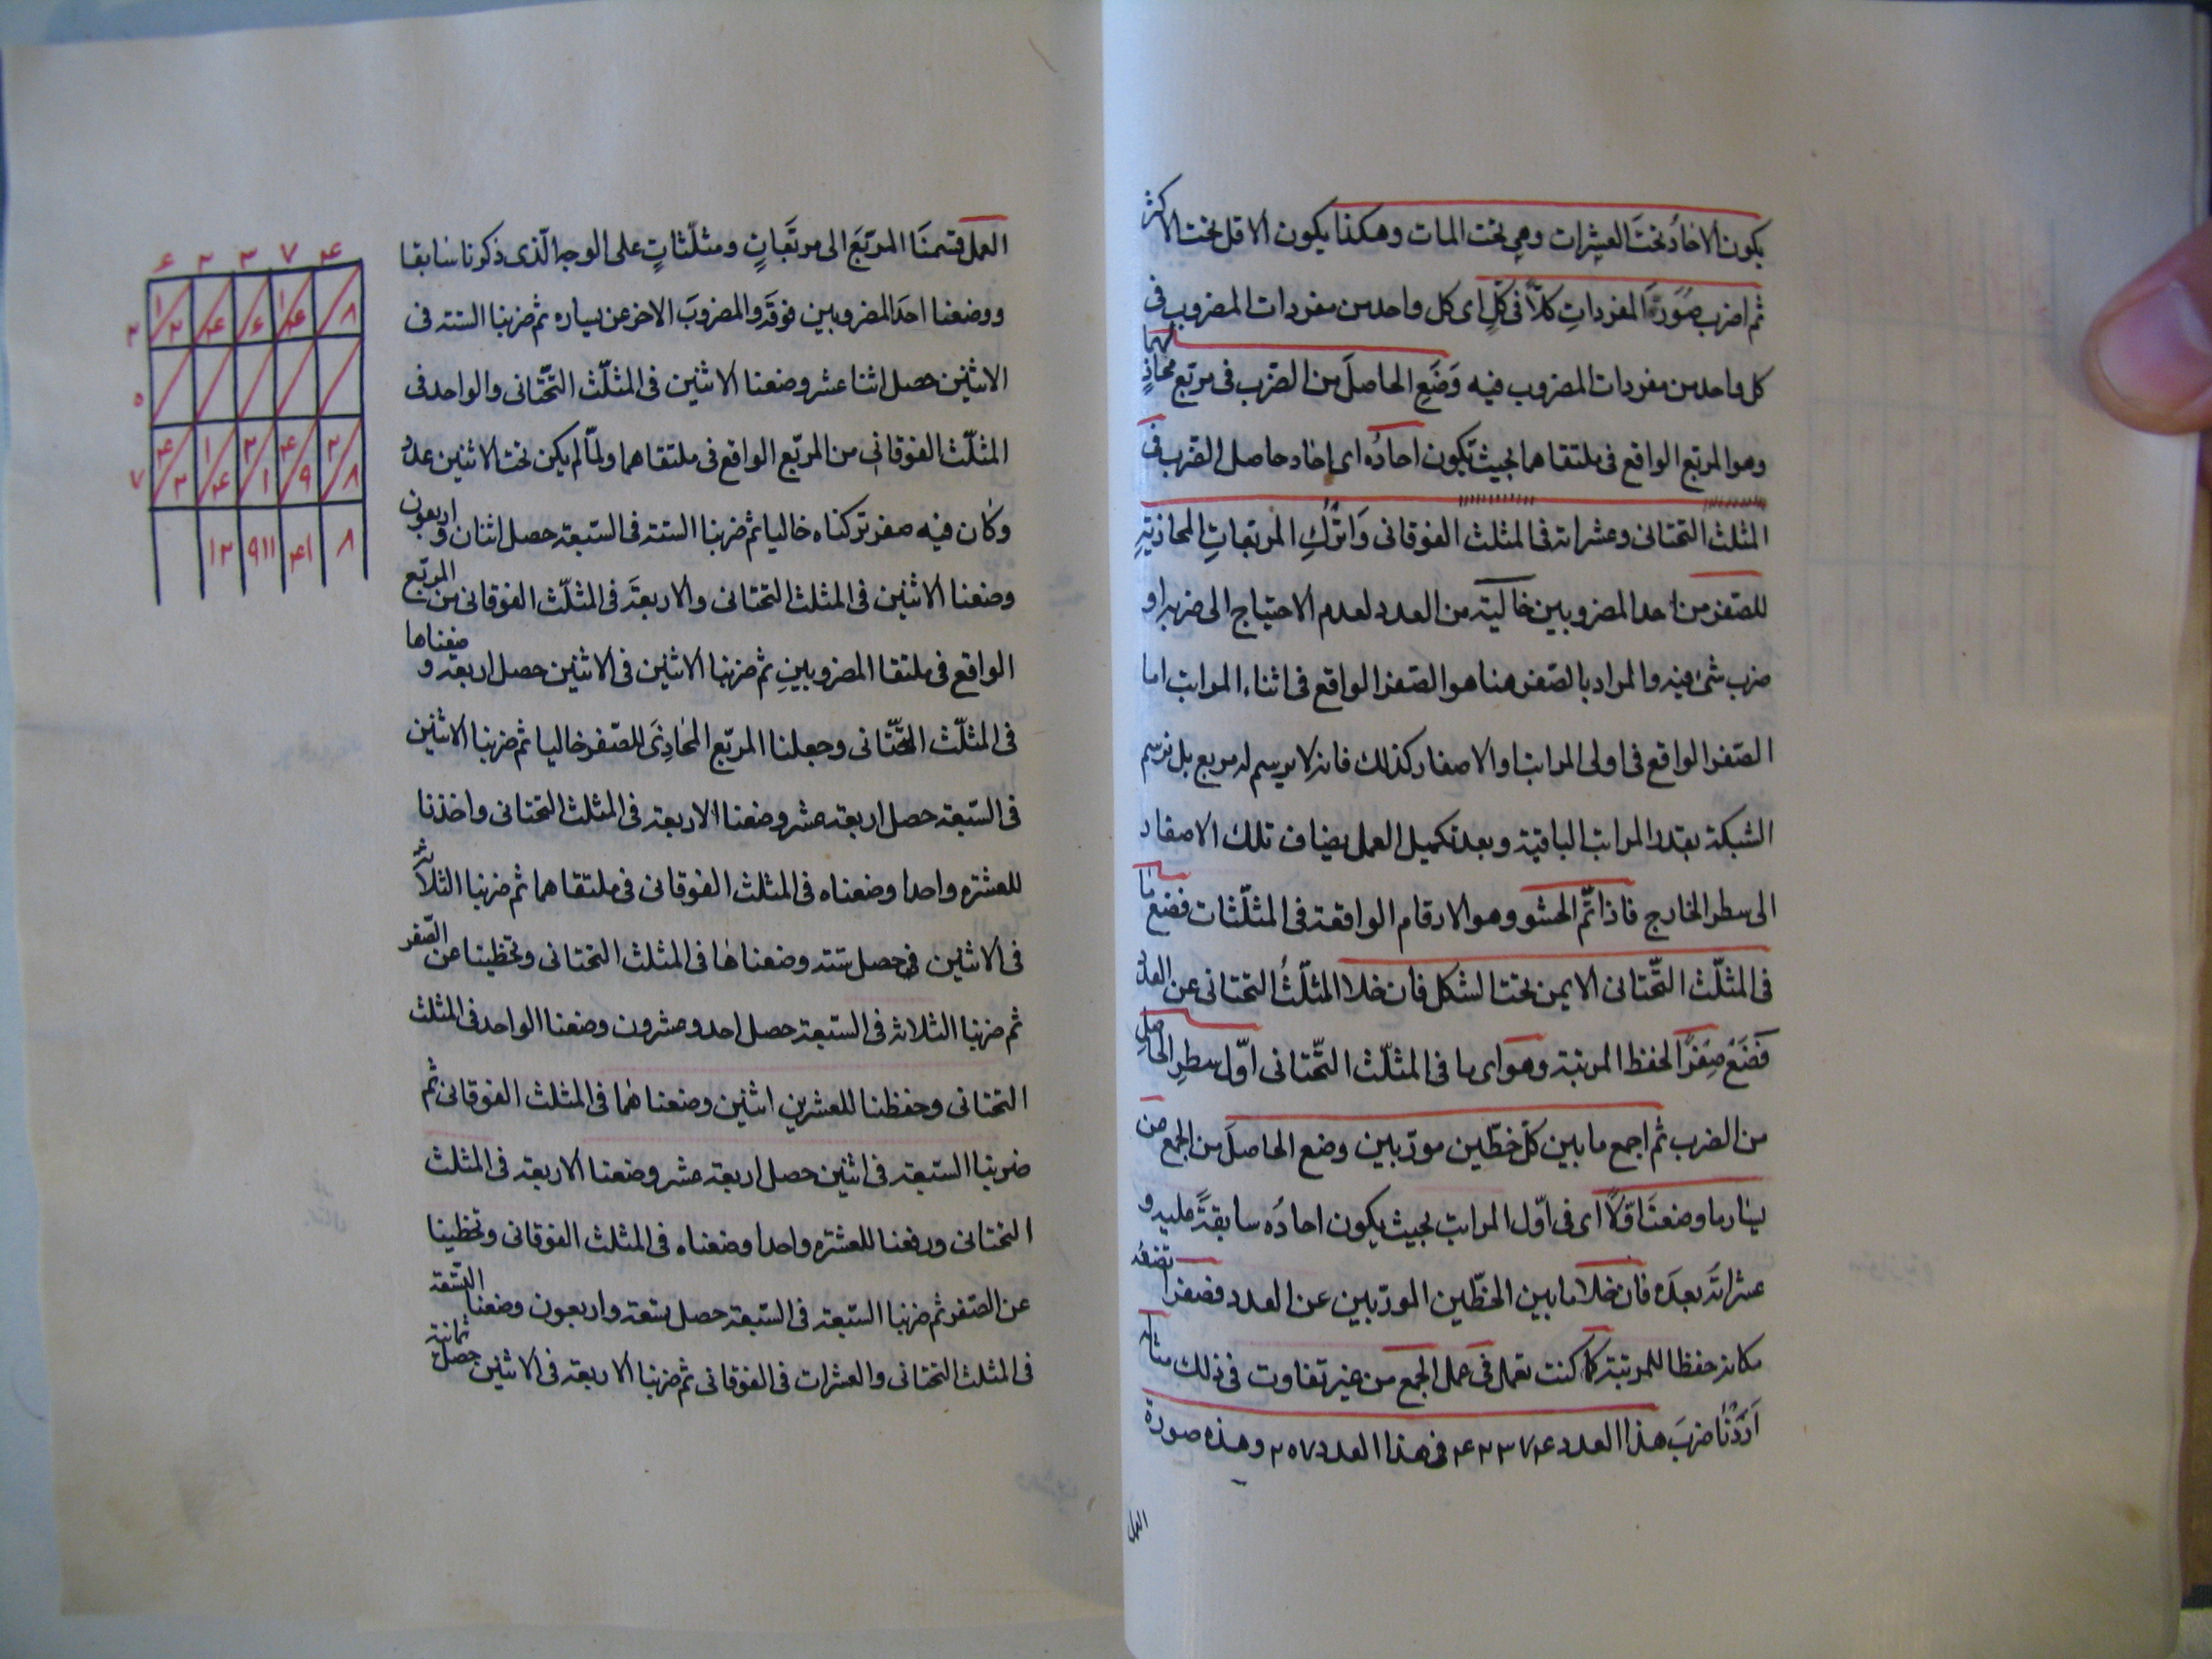 يكون الاحاد تحت العشرات وهى تحت المات وهكذا يكون الاقل تحت الاكثر
ثم اضرب صورة المفردات كلا فى كل اى كل واحد من مفردات المضروب فى
كل واحد من مفردات المضروب فيه وضع الحاصل من الضرب فى مربع محاذٍ لهما
وهو المربع الواقع فى ملتقاهما بحيث تكون احاده اى احاد حاصل الضرب فى
المثلث التحتانى وعشراته فى المثلث الفوقانى واترك المربعات المحاذية
للصفر من احد المضروبين خالية من العدد لعدم الاحتياج الى ضربه او
ضرب شئ فيه والمراد بالصفر هنا هو الصفر الواقع فى اثناء المراتب اما
الصفر الواقع فى اولى المراتب او الاصفار كذلك فانه لا يرسم له مربع بل نرسم
الشبكة بقدر المراتب الباقية وبعد تكميل العمل يضاف تلك الاصفار
الى سطر الخارج فاذا تم الحشو وهو الارقام الواقعة فى المثلثات فضع ما
فى المثلث التحتانى الايمن تحت الشكل فان خلا المثلث التحتانى عن العدد
فضع صفرا لحفظ المرتبة وهو اى ما فى المثلث التحتانى اول سطر الحاصل
من الضرب ثم اجمع ما بين كل خطين موربين وضع الحاصل من الجمع من
يسار ما وضعت اولا اى فى اول المراتب بحيث يكون احاده سابقة عليه و
عشراته بعده فان خلا ما بين الخطين الموربين عن العدد فصفرا تضعه
مكانه حفظا للمرتبة كما كنت تعمل فى عمل الجمع من غير تفاوت فى ذلك مثاله
اردنا ضرب هذا العدد ۶۲۳۷۴ فى هذا العدد ۲۰۷ وهذه صورة
العمل
العمل قسمنا المربع الى مربعات ومثلثات على الوجه الذى ذكرنا سابقا
ووضعنا احد المضروبين فوقه والمضروب الاخر عن يساره ثم ضربنا الستة فى
الاثنين حصل اثنا عشر وضعنا الاثنين فى المثلث التحتانى والواحد فى
المثلث الفوقانى من المربع الواقع فى ملتقاهما ولما لم يكن تحت الاثنين عدد
وكان فيه صفر تركناه خاليا ثم ضربنا الستة فى السبعة حصل اثنان واربعون
وضعنا الاثنين فى المثلث التحتانى والاربعة فى المثلث الفوقانى من المربع
الواقع فى ملتقا المضروبين ثم ضربنا الاثنين فى الاثنين حصل اربعة وضعناها
فى المثلث التحتانى وجعلنا المربع المحاذى للصفر خاليا ثم ضربنا الاثنين
فى السبعة حصل اربعة عشر وضعنا الاربعة فى المثلث التحتانى واخذنا
للعشره واحدا وضعناه فى المثلث الفوقانى فى ملتقاهما ثم ضربنا الثلاثة
فى الاثنين حصل ستة وضعناها فى المثلث التحتانى وتخطينا عن الصفر
ثم ضربنا الثلاثه فى السبعة حصل احد وعشرون وضعنا الواحد فى المثلث
التحتانى وحفظنا للعشرين اثنين وضعناهما فى المثلث الفوقانى ثم
ضربنا السبعة فى اثنين حصل اربعة عشر وضعنا الاربعة فى المثلث
التحتانى ورفعنا للعشره واحدا وضعناه فى المثلث الفوقانى وتخطينا
عن الصفر ثم ضربنا السبعة فى السبعة حصل تسعة واربعون وضعنا التسعة
فى المثلث التحتانى والعشرات فى الفوقانى ثم ضربنا الاربعة فى الاثنين حصل ثمانية
۶ ۲ ۳ ۷ ۴
۲ ۱ ۲ ۴ ۶ ۱ ۴ ۸
۵
۷ ۴ ۲ ۱ ۴ ۲ ۱ ۴ ۹ ۲ ۸
۱۲ ۹۱۱ ۴۱ ۸